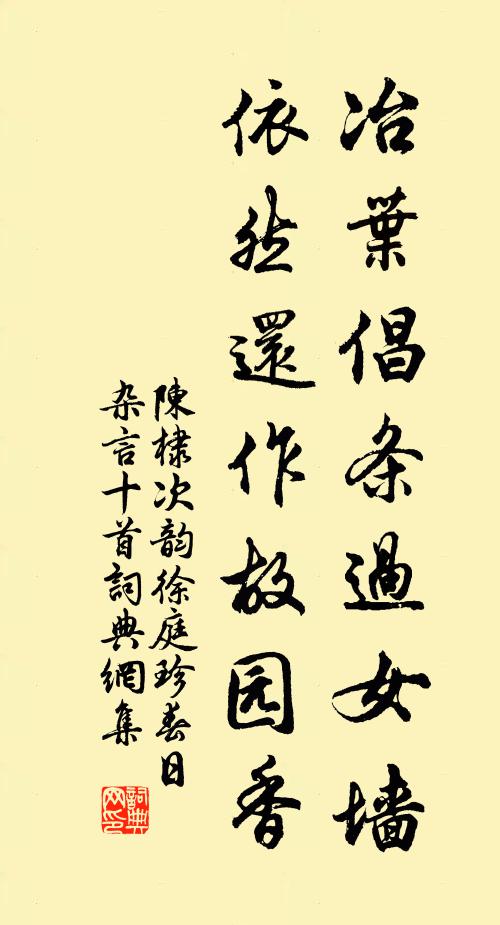 冶葉倡条過女墙
依然還作故园香
陳棣次韵徐庭珍春日
杂言十首詞典網集
詞典网印